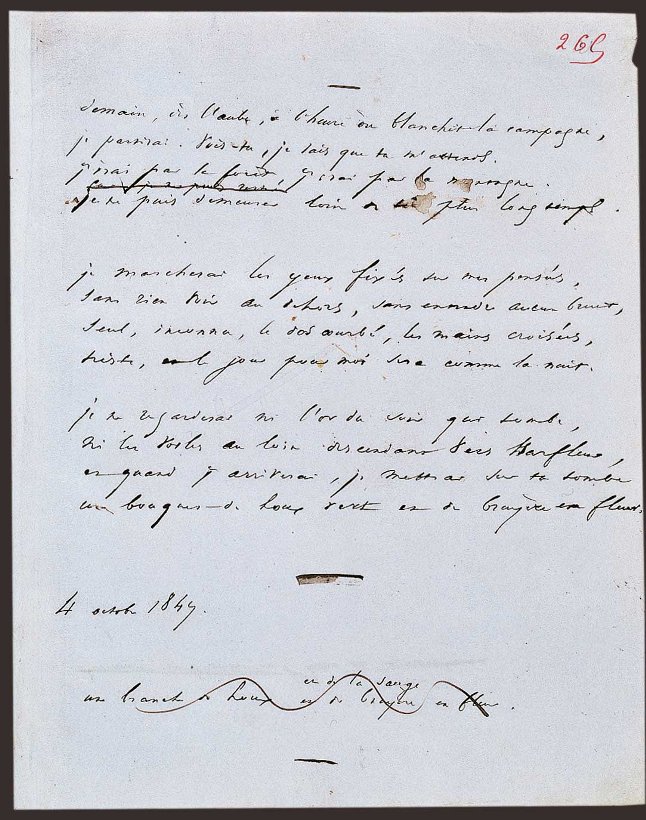 demain, dès l'aube, à l'heure où blanchit la campagne,
je partirai. Vois-tu, je sais que tu m'attends.
j'irai par la forêt, j'irai par la montagne.
je ne puis demeurer loin de toi plus longtemps.
je marcherai les yeux fixés sur mes pensées,
sans rien voir au dehors, sans entendre aucun bruit,
seul, inconnu, le dos courbé, les mains croisées,
triste, et le jour pour moi sera comme la nuit.
je ne regarderai ni l'or du soir qui tombe,
ni les voiles au loin descendant vers Harfleur,
et quand j'arriverai, je mettrai sur ta tombe
un bouquet de houx vert et de bruyère en fleur.
4 octobre 1847.
de la sauge
une branche de houx et de bruyère en fleur.